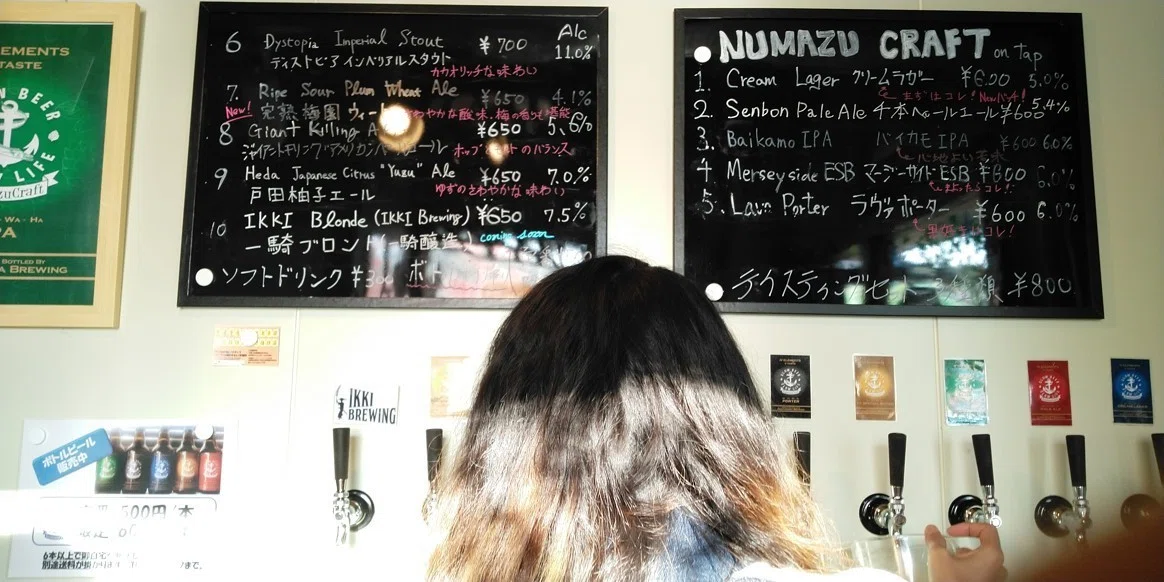 EMENTS
TASTE
BEER
LIFE
BOTTLED BY
BREWING
Alc
6 Dystopia Imperial Stout ¥700 11.0%
ディストピア インペリアルスタウト
カカオリッチな味わい
7. Ripe Sour Plum Wheat Ale ¥650 4.1%
New! 完熟梅園
8 Giant Killing ¥650
ホップ のバランス
9 Heda Japanese Citrus "Yuzu" Ale ¥650 7.0%
戸田柚子エール ゆずのさわやかな味わい
10 IKKI Blonde (IKKI Brewing) ¥650 7.5%
一騎ブロンド(一騎醸造) coming soon
ソフトドリンク ¥300
NUMAZU CRAFT on tap
1. Cream Lager クリームラガー ¥600 5.0%
まずはコレ!
2. Senbon Pale Ale 千本ペールエール ¥600 5.4%
3. Baikamo IPA バイカモ IPA ¥600 6.0%
4. Merseyside ESB マージーサイド ESB ¥600 6.0%
5. Lava Porter ラヴァポーター ¥600 6.0%
テイスティングセット 3種類 ¥800
IKKI
BREWING
ボトルビール
販売中
500円/本
6本以上で
別途送料が